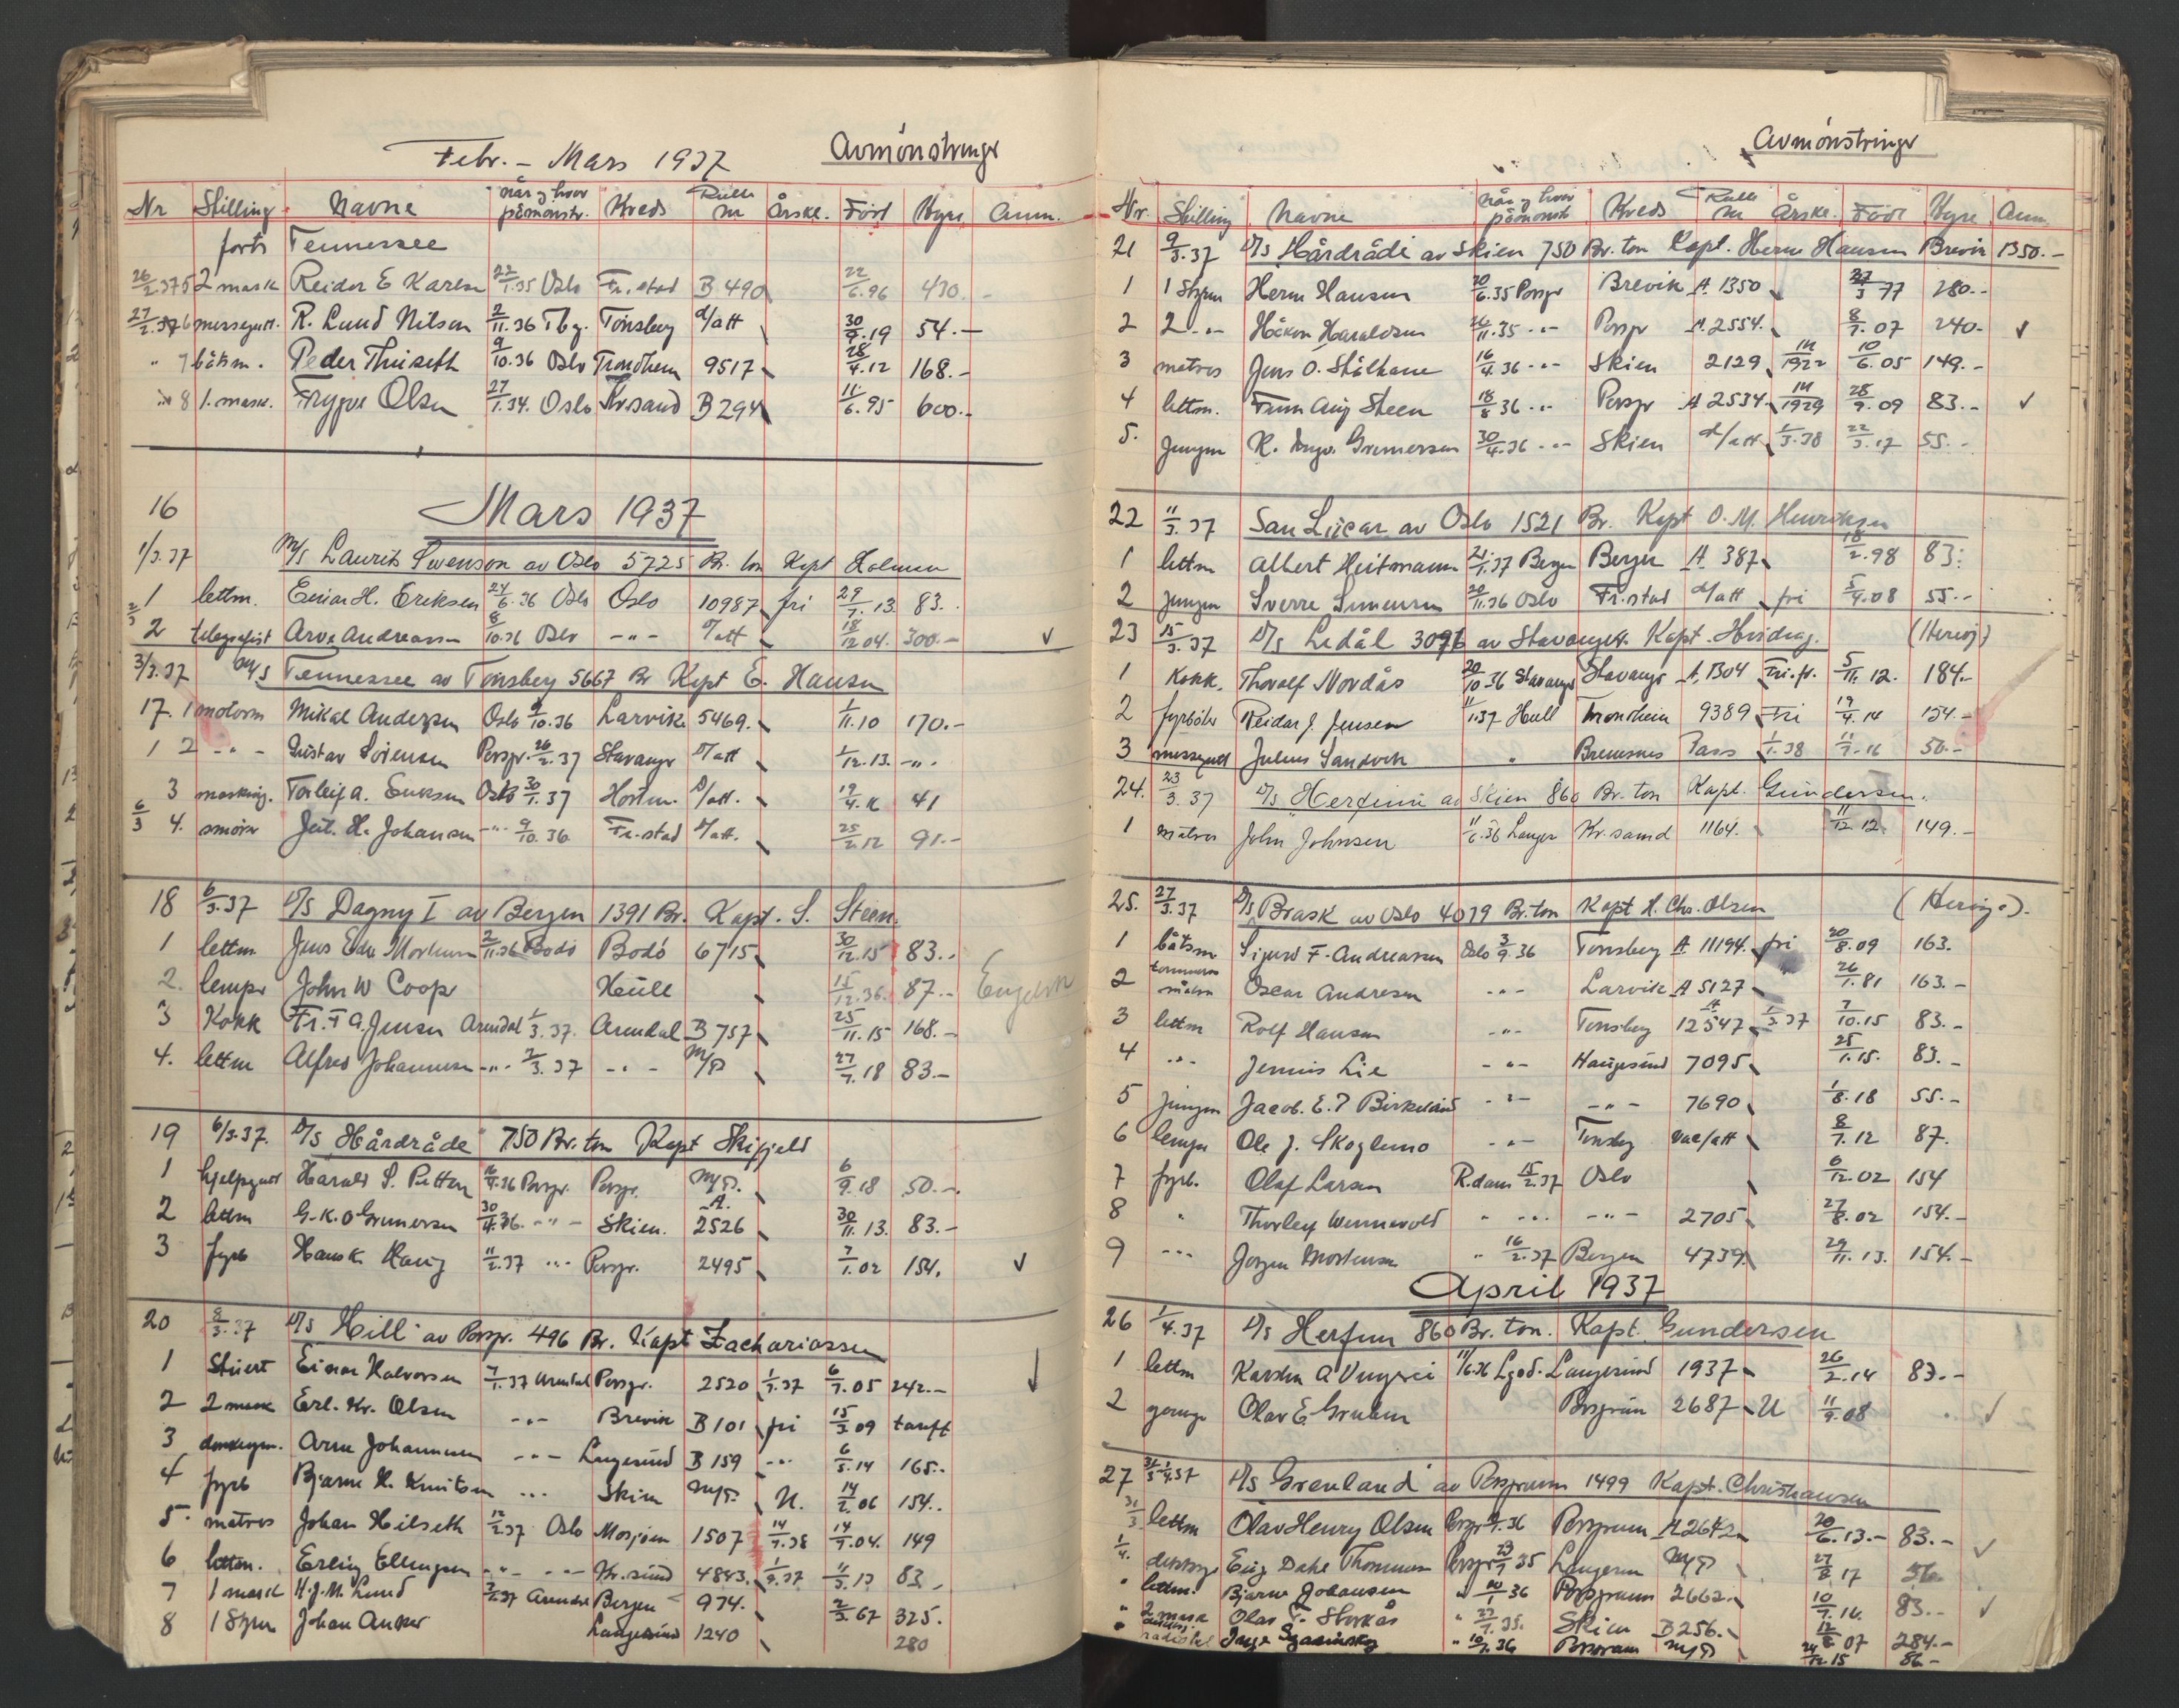 Febr. - Mars 1937 Avmönstringr
Nr Stilling Navne når og hvor påmönstr. Kreds Rulle nr Årskl. Född Hyre Anm.
forts Tennessee
26/2.37 5 2 mask Reidar E Karlsen 22/1.35 Oslo Fr.stad B 490 22/6.96 430.-
27/2.37 6 messegutt. R. Lund Nilsen 2/11.36 Tbg. Tönsberg d/att 30/9.19 54.-
" 7 båtsm. Peder Thriseth 9/10.36 Oslo Trondhem 9517 28/4.12 168.-
" 8 1. mask. Trygve Olsen 27/1.34. Oslo Krsand B 294 11/6.95 600.-
16 Mars 1937
1/3.37 M/S Laurits Swenson av Oslo 5725 Br. ton Kapt Holmen
1 lettm. Einar H. Eriksen 24/6.36 Oslo Oslo 10987 fri 29/7.13 83.-
2/3 2 telegrafist Arve Andreassen 8/10.36 Oslo -"- d/att 18/12 04. 300.-
3/3.37 M/S Tennessee av Tönsberg 5667 Br Kapt E. Hansen
17. 1 motorm Mikal Andersen Oslo 9/10.36 Larvik 5469. 1/11.10 170.-
1 2 -"- Gustav Sörensen Porsgr. 26/2.37 Stavangr d/att 1/12.13. -"-
3 masking. Torleif A. Eriksen Oslo 30/1.37 Horten. d/att. 19/4.16 41
6/3 4. smörer Joh. H. Johansen -"- 9/10.36. Fr.stad d/att. 25/2.12 91.-
18 6/3.37 D/S Dagny I av Bergen 1391 Br. Kapt. S. Steen.
1 lettm. Jens Edv Mortensen 2/11.36 Bodö Bodö 6715 30/12.15 83.-
2. lempr John W Coopr Hüll 15/12.36. 87.- Engelsk
3 Kokk Fr. F A. Jensen Arendal 1/3.37. Arendal B 757 25/11.15 168.-
4. lettm Alfred Johannesen -"- 2/3.37 -"- m/P 27/7.18 83.-
19 6/3.37. D/S Hårdråde 750 Br. ton Kapt Skifjeld
1 hjelpegutt Harald S. Pettersen 16/9.36 Porsgr. Porsgr. m/P. 6/9.18 50.-
2 lettm G.K.O Grunersen 30/4.36. -"- Skien. A. 2526 30/11.13. 83.-
3 fyrb Hans K Haug 11/2.37 -"- Porsgr. 2495 7/1.02 154.
20 8/3.37 D/S Hill av Porsgr. 496 Br. Kapt Zachariassen
1 Stüert Einar Halvorsen 7/1.37 Arendal Porsgr. 2520 1/7.37 6/7.05 242.-
2 2 mask Erl. Kr. Olsen -"- Brevik B 101 fri 15/3 09 tariff
3 donkeym. Arne Johannesen -"- Langesünd B 159 -"- 6/5.14 165.-
4 fyrb Bjarne K. Knutsen -"- Skien m/P. U. 14/2.06 154.-
5. matros Johan Hilseth 12/2.37 Oslo Mosjöen 1507 14/7.38 14/7.04. 149
6 lettm. Erling Ellingsen -"- -"- Kr.sünd 4883. 1/9.37 11/3.13 83.-
7 1 mask H.J.M. Lund 2/2.37 Arendal Bergen 974. 2/3.67 325.
8 1 Styrm Johan Anker Langesünd 1240 280
Avmönstringr
Nr. Stilling Navne når og hvor påmönstr Kreds Rulle nr Årskl. Född Hyre Anm.
21 9/3.37 D/S Hårdråde av Skien 750 Br. ton Kapt. Herm Hansen Brevik 1350.-
1 1 Styrm Herm Hansen 20/6.35 Porsgr Brevik A. 1350 27/3 77 280.-
2 2 -"- Håkon Haraldsen 26/11.35 -"- Porsgr A. 2554. 8/7.07 240.-
3 matros Jens O. Stålhane 16/4.36 -"- Skien 2129 M/1922 10/6.05 149.-
4 lettm. Finn Aug Steen 18/8 36 -"- Porsgr A 2534. M/1929 28/9.09 83.-
5. Jungm K. Ingv. Grunersen 30/4.36 -"- Skien d/att 1/3.38 22/3.17 55.-
22 11/3.37 San Lücar av Oslo 1521 Br. Kapt O.M. Henriksen
1 lettm Albert Heitmann 21/1.37 Bergen Bergen A 387 18/2.98 83:
2 jungm Sverre Simensen 20/11.36 Oslo Fr.stad d/att fri 5/4.08 55.-
23 15/3.37 D/S Ledål 3076 av Stavanger. Kapt. Hvidrag. (Heroij)
1 Kokk. Thoralf Nordås 20/10 36 Stavangr Stavangr A. 1304 Fri.fr. 5/11.12. 184.-
2 fyrböter Reidar J. Jensen 11/1.37 Hull Trondheim 9389 Fri 19/4.14 154.-
3 messegutt Julius Sandvik " Bremsnes Pass 1/1.38 11/7.16 50.-
24. 23/3.37 D/S Herfinn av Skien 860 Br. ton Kapt. Gundersen.
1 matros John Johnsen 11/6.36 Langes Kr.sand 1164. 11/12 12. 149.-
25. 27/3.37 D/S Brask av Oslo 4079 Br. ton Kapt H. Chr. Olsen (Heröya).
1 båtsm Sigurd F. Andreassen Oslo 3/9.36 Tönsberg A 11194. fri 20/8.09 163.
2 tömmermann Oscar Andresen -"- Larvik A 5127 26/1.81 163.-
3 lettm Rolf Hansen -"- Tönsberg A 12547 1/3.37 7/10.15 83.-
4 -"- Jennus Lie -"- Haugesünd 7095 25/1.15. 83.-
5 jungm Jacob. E. T Birkeland -"- -"- 7690 1/8.18 55.-
6 lempr Ole J. Skoglund -"- Tönsberg vac/att 8/7.12 87.
7 fyrb. Olaf Larsen R.dam 15/2.37 Oslo 6/12.02 154
8 " Thorleif Wennevold " -"- -"- 2705 27/8.02 154.-
9 -"- Jörgen Mortensen " 16/2.37 Bergen 4739. 29/11.13. 154.-
April 1937
26 1/4.37 D/S Herfinn 860 Br. ton. Kapt. Gundersen
1 lettm Karsten A 11/6.36 Lgsd. Langesünd 1937 26/2.14 83.-
2 gauge Olav E. Gruben Porsgrün 2687 U 11/9.08
27 31/3-1/4.37 D/S Grenland av Porsgrunn 1499 Kapt. Christiansen
31/3 lettm Olav Henry Olsen Porsgr 9/7.36 Porsgrunn A 2642 20/6.13.- 83.-
1/4. dekksgt Eug Dahl Thommesen Porsgr 23/7 35 Langesun m/P 27/8 17 56.-
" lettm. Bjarne Johansen " 20/1 36 Porsgrunn 2662. 10/7.16. 83.-
" 2 mask Olav T. Storkås " 27/7.35. Skien B 256. 12/8 07 284.-
" radiotel. Inge " 10/7.36 Porsgrunn m/P 24/12 15 86.-